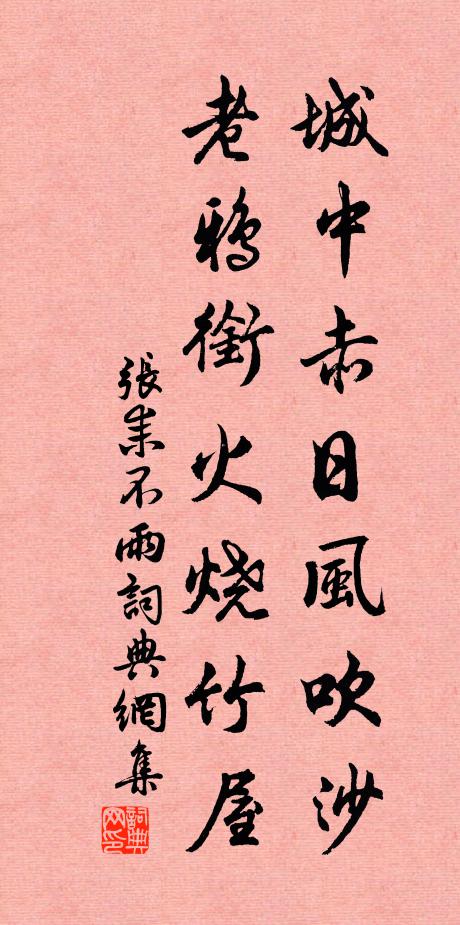 城中赤日風吹沙
老鴉銜火燒竹屋
張耒不雨詞典網集
詞典网印